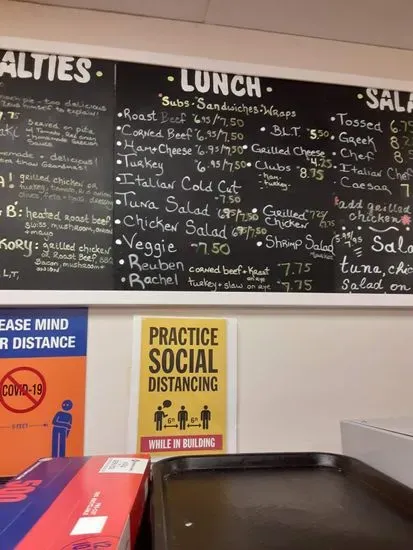 ALTIES
too delicious
to explain!
.75
Served on pita
homemade Grecian
Sauce
made - delicious!
Grandmas!
A! grilled chicken or
turkey, tomato, onion
olives, feta + Greek dressing
B: heated roast beef,
swiss, mushroom, onion
+ mayo
KORY: grilled chicken
or Roast Beef, BBQ
Bacon, mushroom +
onion
LT,
LUNCH
Subs · Sandwiches · Wraps
Roast Beef 6.95/7.50
Corned Beef 6.95/7.50
Ham+Cheese 6.95/7.50
Turkey 6.95/7.50
Italian Cold Cut
7.50
Tuna Salad 6.95/7.50
Chicken Salad 6.95/7.50
Veggie 7.50
Reuben corned beef + kraut on rye 7.75
Rachel turkey + slaw on rye 7.75
B.L.T. 5.50
Grilled Cheese
4.25
Clubs 8.75
-ham
-turkey
Grilled
Chicken
Shrimp Salad
SALA
Tossed 6.75
Greek 8.
Chef 8
Italian Chef
Caesar 7
add grilled
chicken
Sala
tuna, chic
Salad on
EASE MIND
R DISTANCE
COVID-19
6 FEET
PRACTICE
SOCIAL
DISTANCING
6ft 6ft
WHILE IN BUILDING
500